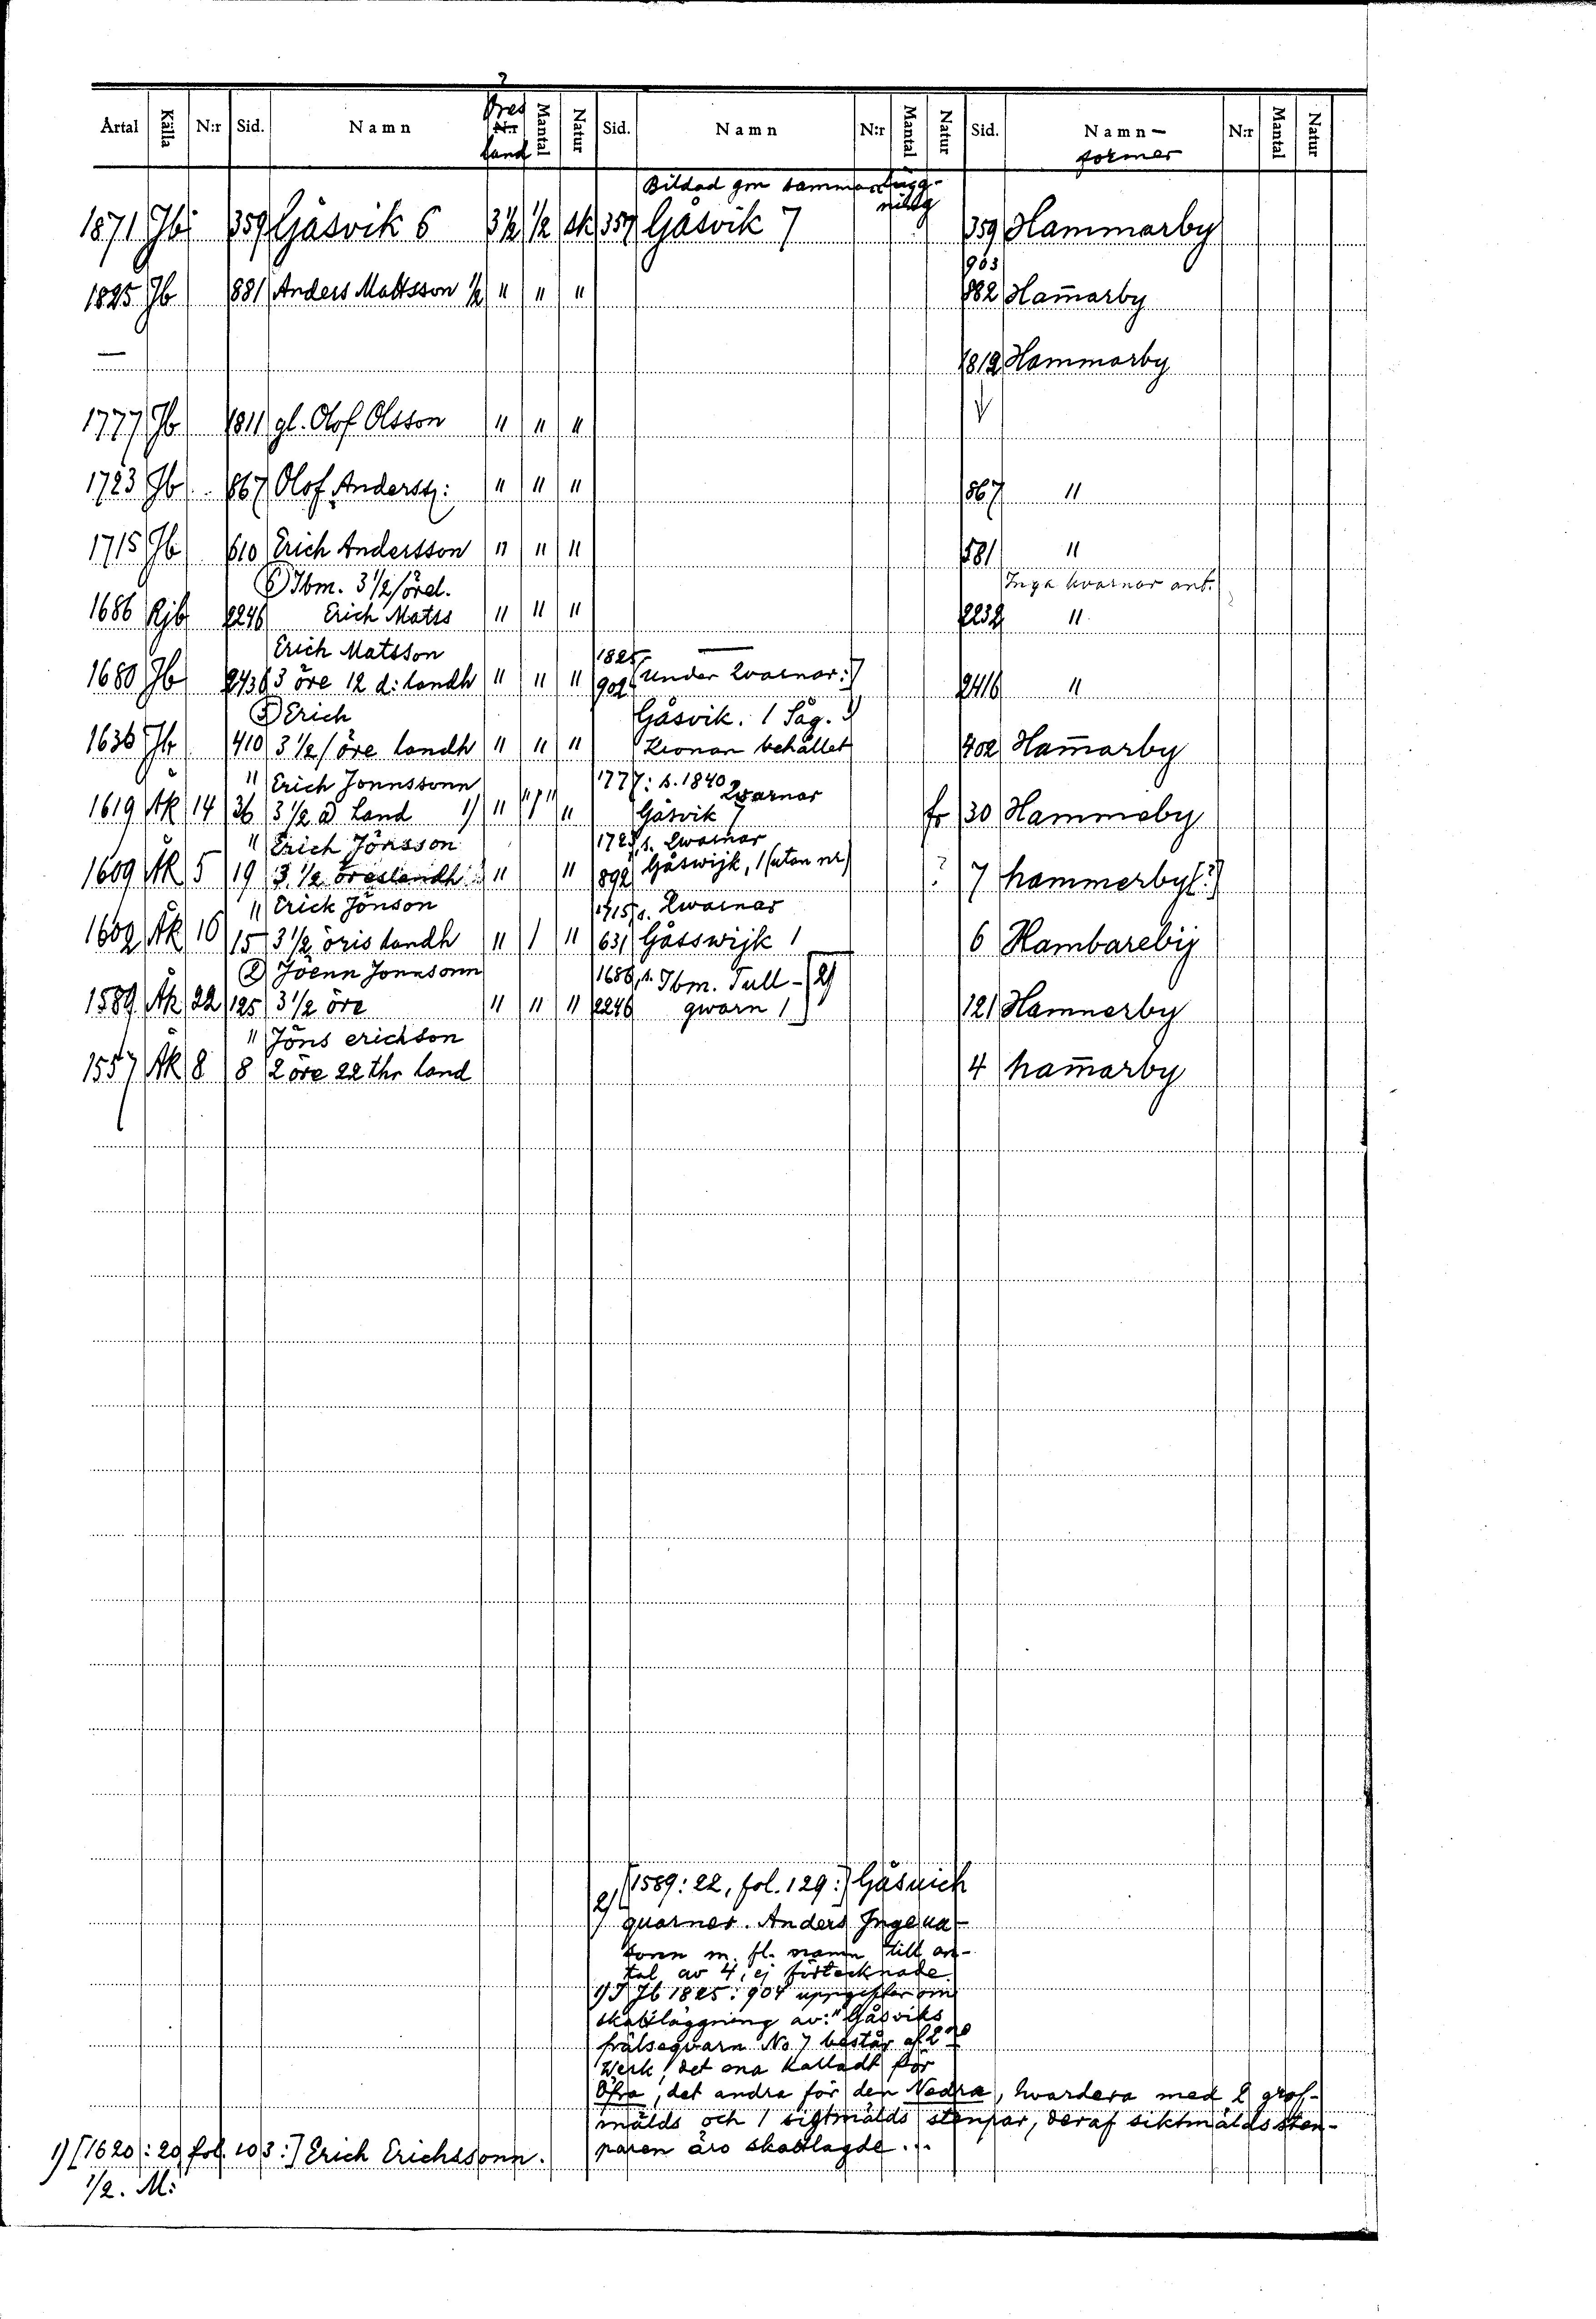 ?
Öres
Årtal Källa N:r Sid. Namn N:r Mantal Natur Sid. Namn N:r Mantal Natur Sid. Namn- N:r Mantal Natur
land former
Bildad gm sammanlägg-
ning
1871 Jb 359 Gåsvik 6 3½ ½ sk 357 Gåsvik 7 359 Hammarby
903
1825 Jb 881 Anders Mattsson ½ " " " 882 Ham̄arby
— 1812 Hammarby
1777 Jb 1811 gl. Olof Olsson " " " ↓
1723 Jb 867 Olof Anderss: " " " 867 "
1715 Jb 610 Erich Andersson " " " 581 "
6) Ibm. 3 1/2/öred. Inga kvarnar ant.
1686 Rjb 2246 Erich Matss " " " 2232 "
Erich Matsson 1825,
1680 Jb 2436 3 öre 12 d: landh " " " 902 under Qvarnar:] 2416 "
5) Erich Gåsvik. 1 Såg. 1)
1636 Jb 410 3 1/2/ öre landh " " " Kronan behållet 402 Ham̄arby
" Erich Jonnssonn 1777: s. 1840 Qvarnar
1619 Åk 14 36 3 1/2 ö Land 1) " "/" " Gåsvik 7 fr 30 Hammeby
" Erich Jönsson 1723, s. Qwarnar
1609 Åk 5 19 3. 1/2 öreslandh " " 892 Gåswijk, 1 (utan nr) ? 7 hammerby[?]
" Erick Jönson 1715, s. Qwarnar
1602 Åk 16 15 3 1/2 öris landh " 1 " 631 Gåsswijk 1 6 Hambarebij
2) Jöenn Jonnsonn 1686, s. Ibm. Tull- 2)
1589 Åk 22 125 3 1/2 öre " " " 2246 qwarn 1] 121 Hamnerby
" Jöns erichson
1557 Åk 8 8 2 öre 22 thr land 4 ham̄arby
2) [1589: 22, fol. 129:] Gåsuich
quarner. Anders Ingeua-
sonn m. fl. namn till an-
tal av 4, ej förtecknade.
1) I Jb 1825: 904 uppgifter om
skattläggning av: "Gåsviks
frälseqvarn No 7 består af 2ne
Werk, det ena kalladt för
Öfra, det andra för den Nedra, hvardera med 2 grof-
mälds och 1 sigtmälds stenpar, deraf siktmälds sten-
paren äro skattlagde...
1) [1620: 20 fol. 103:] Erich Erichssonn.
1/2. M: